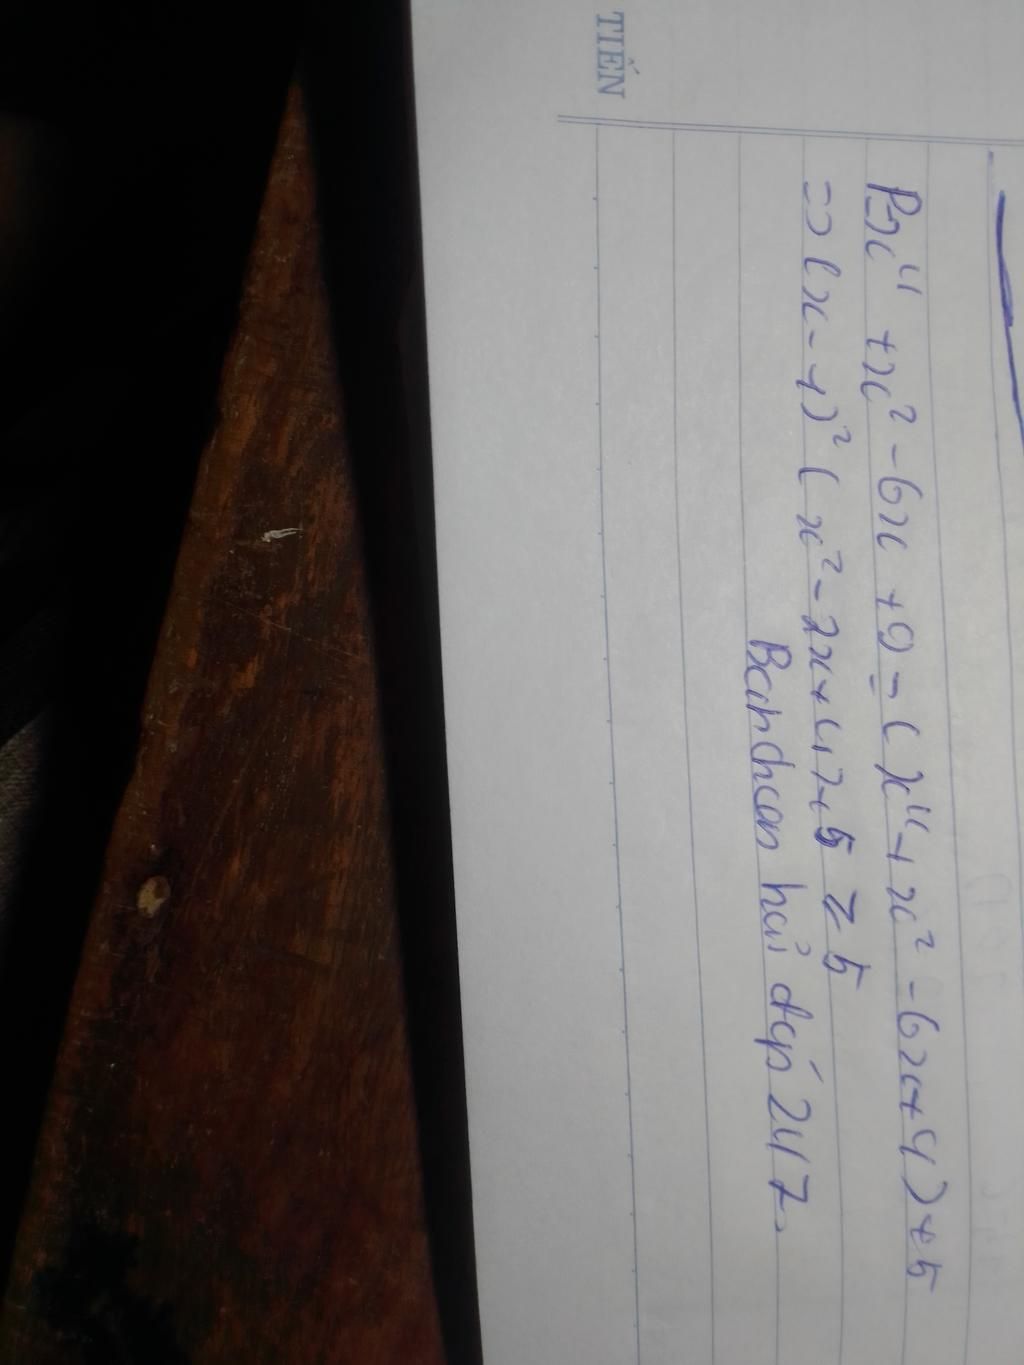 TIẾN
P=x⁴ + x² - 6x + 9 = (x⁴ + x² - 6x + 4) + 5
=> (x - 1)² (x² - 2x + 4) + 5 ≥ 5
Banchcon hỏi đáp 247